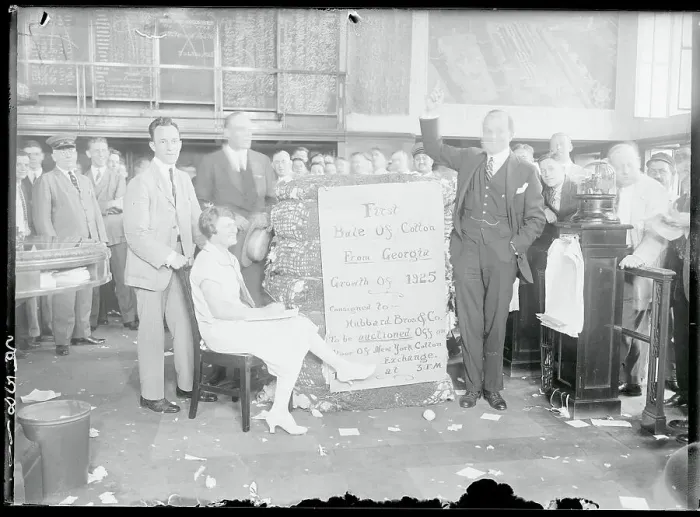 First
Bale Of Cotton
From Georgia
Growth Of 1925
Consigned to
Hubbard Bros & Co.
To be auctioned Off on
Floor Of New York Cotton
Exchange.
at 3 P.M